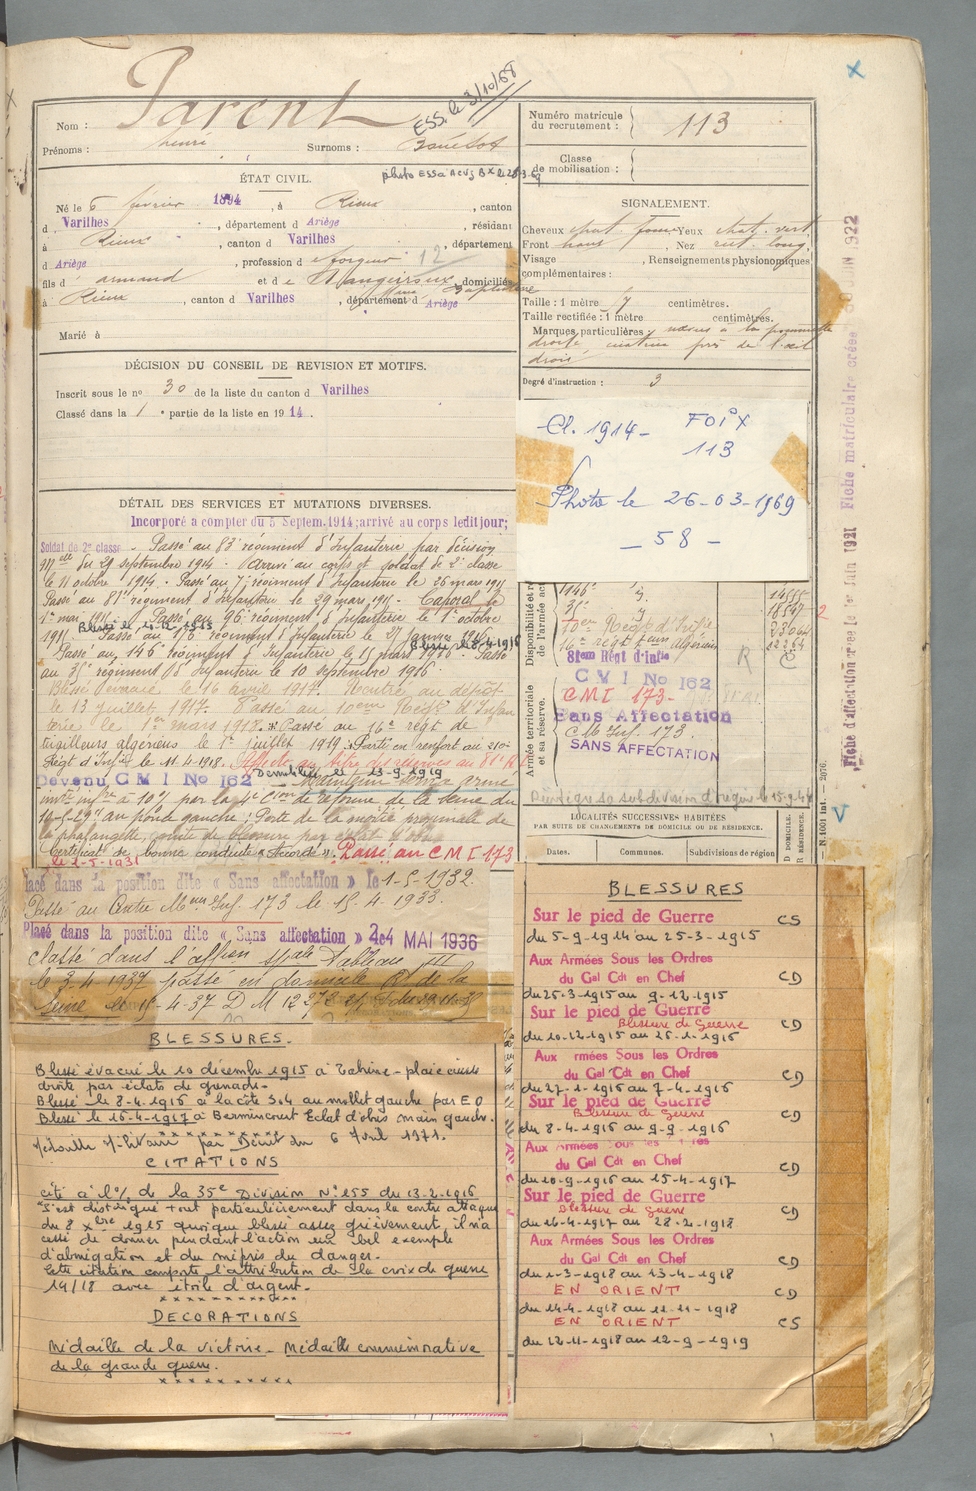 Parent
ESS. le 3/10/68
Nom :
Prénoms : henri Surnoms :
photo ESSa ACVG
ÉTAT CIVIL.
Né le 6 février 1894, à Rieux, canton
d Varilhes, département d Ariège, résidant
à Rieux, canton d Varilhes, département
d Ariège, profession d e forgeur 12
fils d armand et d e domiciliés
à Rieux, canton d Varilhes, département d Ariège
Marié à
DÉCISION DU CONSEIL DE REVISION ET MOTIFS.
Inscrit sous le no 30 de la liste du canton d Varilhes
Classé dans la 1 e partie de la liste en 1914.
DÉTAIL DES SERVICES ET MUTATIONS DIVERSES.
Incorporé a compter du 5 Septem. 1914; arrivé au corps ledit jour;
Soldat de 2e classe - Passé au 83e régiment d'Infanterie par décision
du 29 septembre 1914. Arrivé au corps et soldat de 2e classe
le 11 octobre 1914. Passé au 7e régiment d'Infanterie le 26 mars 1915
Passé au 81e régiment d'Infanterie le 29 mars 1915. Caporal le
1er mai 1915. Passé au 96e régiment d'Infanterie le 1er octobre
1915. Passé au 176 régiment d'Infanterie le 27 Janvier 1916
Passé au 146e régiment d'Infanterie le 15 mars 1916. Passé
au 35e régiment d'Infanterie le 10 septembre 1916
Blessé évacué le 16 avril 1917. Rentré au dépôt
le 13 juillet 1917. Passé au 10eme Régt d'Infan
terie le 1er mars 1918. Passé au 16e régt de
tirailleurs algeriens le 1er juillet 1919. Parti en renfort au 210e
Régt d'Infie le 11.4.1918. Affecté au titre des réserves au 81e R
Démobilisé le 13-9-1919
Devenu C M I No 162 Maintenu service armé
invté infre à 10% par la 4e Cion de réforme de la Seine du
au pouce gauche ; Perte de la moitié proximale de
la phalangette, suite de blessure par éclat d'obus
Certificat de bonne conduite « Accordé ». Passé au C M I 173
le 2-5-1931
lacé dans la position dite « Sans affectation » le 1-5-1932.
Passé au Centre Mon Inf. 173 le 15.4.1933.
Placé dans la position dite « Sans affectation » 24 MAI 1936
Classé dans l'affion spale Tableau III
le 3.4.1937 passé en domicile Rt de la
Seine
BLESSURES.
Blessé évacué le 10 décembre 1915 à Tahure - plaie cuisse
droite par éclats de grenade.
Blessé le 8-4-1916 à la côte 304 au mollet gauche par E O
Blessé le 16-4-1917 à Bermincourt Eclat d'obus main gauche.
Médaille Militaire par Décret du 6 Avril 1971.
CITATIONS
cité à l'o/. de la 35e Division N° 155 du 13-2-1916
"S'est distingué tout particulièrement dans la contre attaque
du 8 xbre 1915 quoique blessé assez grièvement, il n'a
cessé de donner pendant l'action un bel exemple
d'abnégation et du mépris du danger.
Cette citation comporte l'attribution de la croix de guerre
14/18 avec étoile d'argent.
x x x x x x x x x x
DECORATIONS
Médaille de la victoire - Médaille commémorative
de la grande guerre.
x x x x x x x x x x
Numéro matricule
du recrutement : 113
Classe
de mobilisation :
SIGNALEMENT.
Cheveux chat. foncé Yeux chat. vert
Front haut, Nez rect. long,
Visage, Renseignements physionomiques
complémentaires :
Taille : 1 mètre centimètres.
Taille rectifiée : 1 mètre centimètres.
Marques particulières : nævus à la pommette
droite, cicatrice près de l'œil
droit
Degré d'instruction : 3
Cl. 1914 - FOIX
113
Photo le 26-03-1969
- 58 -
Disponibilité et r
de l'armée ac
146e
35e
10e Régt d'Infie
16e régt Algérien
81em Régt d'Infie
C M I No 162
Armée territoriale
et sa réserve.
C M I 173
Sans Affectation
C M Inf. 173
SANS AFFECTATION
LOCALITÉS SUCCESSIVES HABITÉES
PAR SUITE DE CHANGEMENTS DE DOMICILE OU DE RÉSIDENCE.
Dates. Communes. Subdivisions de région
D DOMICILE.
R RÉSIDENCE.
N. 1601 Int. — 2076.
BLESSURES
Sur le pied de Guerre CS
du 5-9-1914 au 25-3-1915
Aux Armées Sous les Ordres
du Gal Cdt en Chef CD
du 25-3-1915 au 9-12-1915
Sur le pied de Guerre
Blessure de Guerre CD
du 10-12-1915 au 26-1-1916
Aux rmées Sous les Ordres
du Gal Cdt en Chef CD
du 27-1-1916 au 7-4-1916
Sur le pied de Guerre
Blessure de Guerre CD
du 8-4-1916 au 9-9-1916
Aux Armées Sous les
du Gal Cdt en Chef CD
du 10-9-1916 au 15-4-1917
Sur le pied de Guerre
Blessure de Guerre CD
du 16-4-1917 au 28-2-1918
Aux Armées Sous les Ordres
du Gal Cdt en Chef CD
du 1-3-1918 au 13-4-1918
EN ORIENT CD
du 14-4-1918 au 11-11-1918
EN ORIENT CS
du 12-11-1918 au 12-9-1919